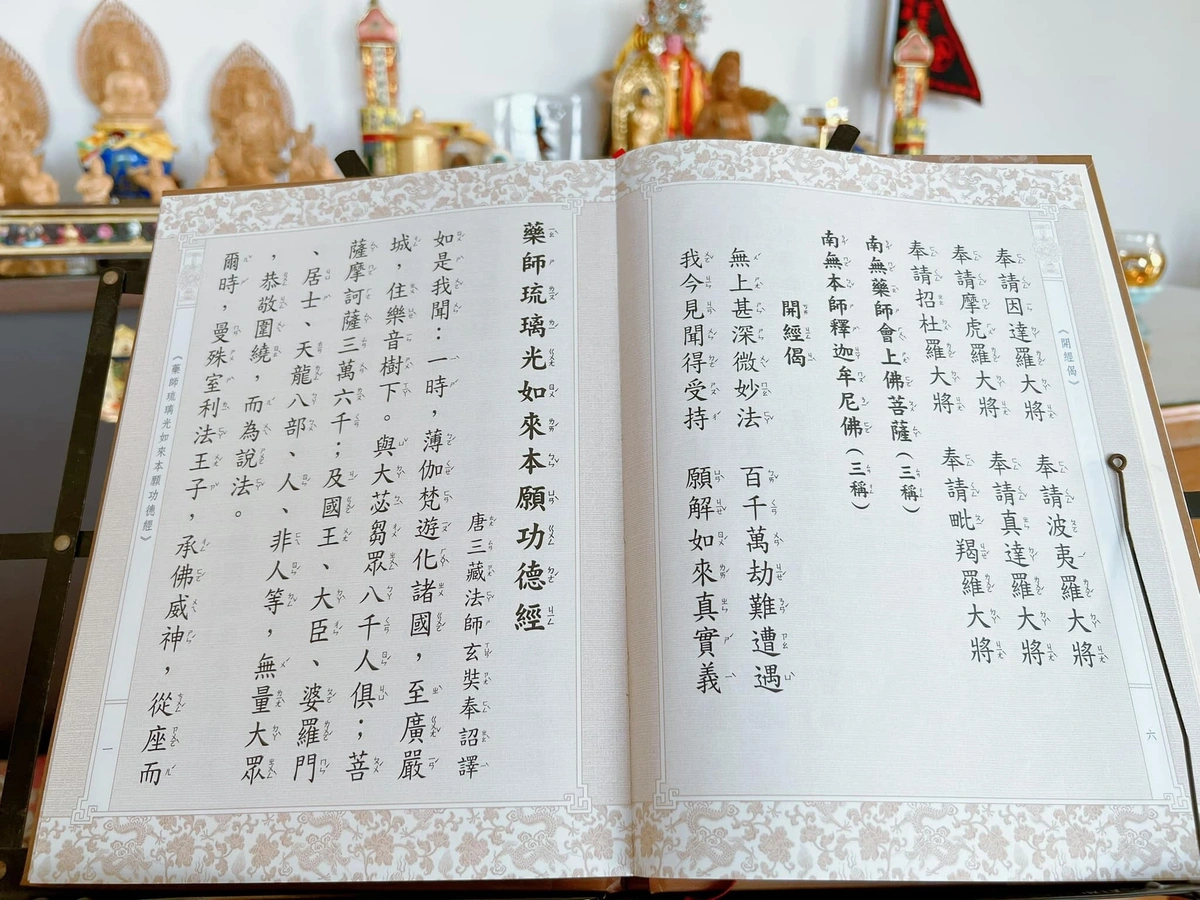 《開經偈》
奉請因達羅大將　奉請波夷羅大將
奉請摩虎羅大將　奉請真達羅大將
奉請招杜羅大將　奉請毗羯羅大將
南無藥師會上佛菩薩(三稱)
南無本師釋迦牟尼佛(三稱)
開經偈
無上甚深微妙法　百千萬劫難遭遇
我今見聞得受持　願解如來真實義
六
藥師琉璃光如來本願功德經
唐三藏法師玄奘奉詔譯
如是我聞：一時，薄伽梵遊化諸國，至廣嚴
城，住樂音樹下。與大苾芻眾八千人俱；菩
薩摩訶薩三萬六千；及國王、大臣、婆羅門
、居士、天龍八部、人、非人等，無量大眾
，恭敬圍繞，而為說法。
爾時，曼殊室利法王子，承佛威神，從座而
《藥師琉璃光如來本願功德經》
一